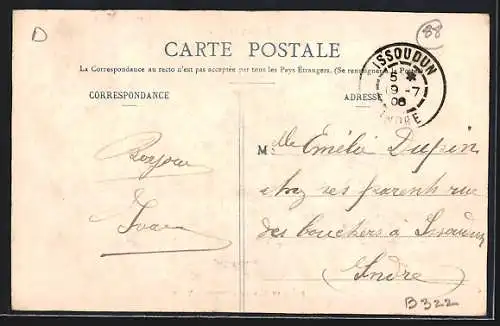 D
88
CARTE POSTALE
La Correspondance au recto n'est pas acceptée par tous les Pays Étrangers. (Se renseigner à la Poste)
CORRESPONDANCE
ADRESSE
ISSOUDUN
5 *
19 -7
06
INDRE
Bonjour
M lle Emélie Dupin
chez ses parents rue
des bouchers à Issoudun
(Indre)
B322